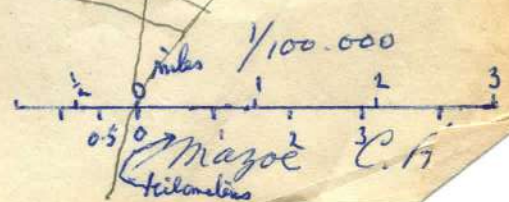 miles 1/100.000
½ 0 1 2 3
0.5 0 1 2 3
Mazoë C.H
Kilometers